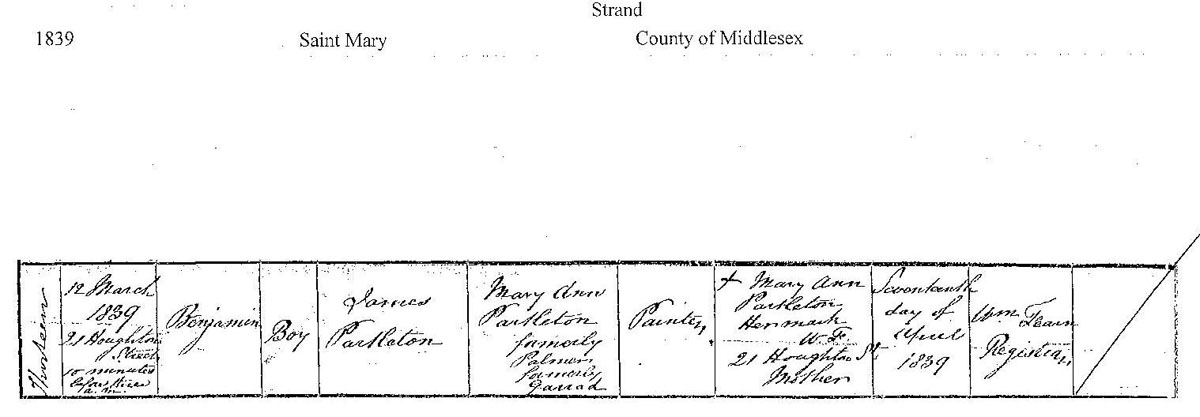 Strand
1839 Saint Mary County of Middlesex
Thirteen
12 March
1839
21 Houghton
Street
10 minutes
before three
a.m.
Benjamin
Boy
James
Partleton
Mary Ann
Partleton
formerly
Palmer
formerly
Garrad
Painter
X Mary Ann
Partleton
Her mark
21 Houghton St
Mother
Seventeenth
day of
April
1839
Wm
Registrar